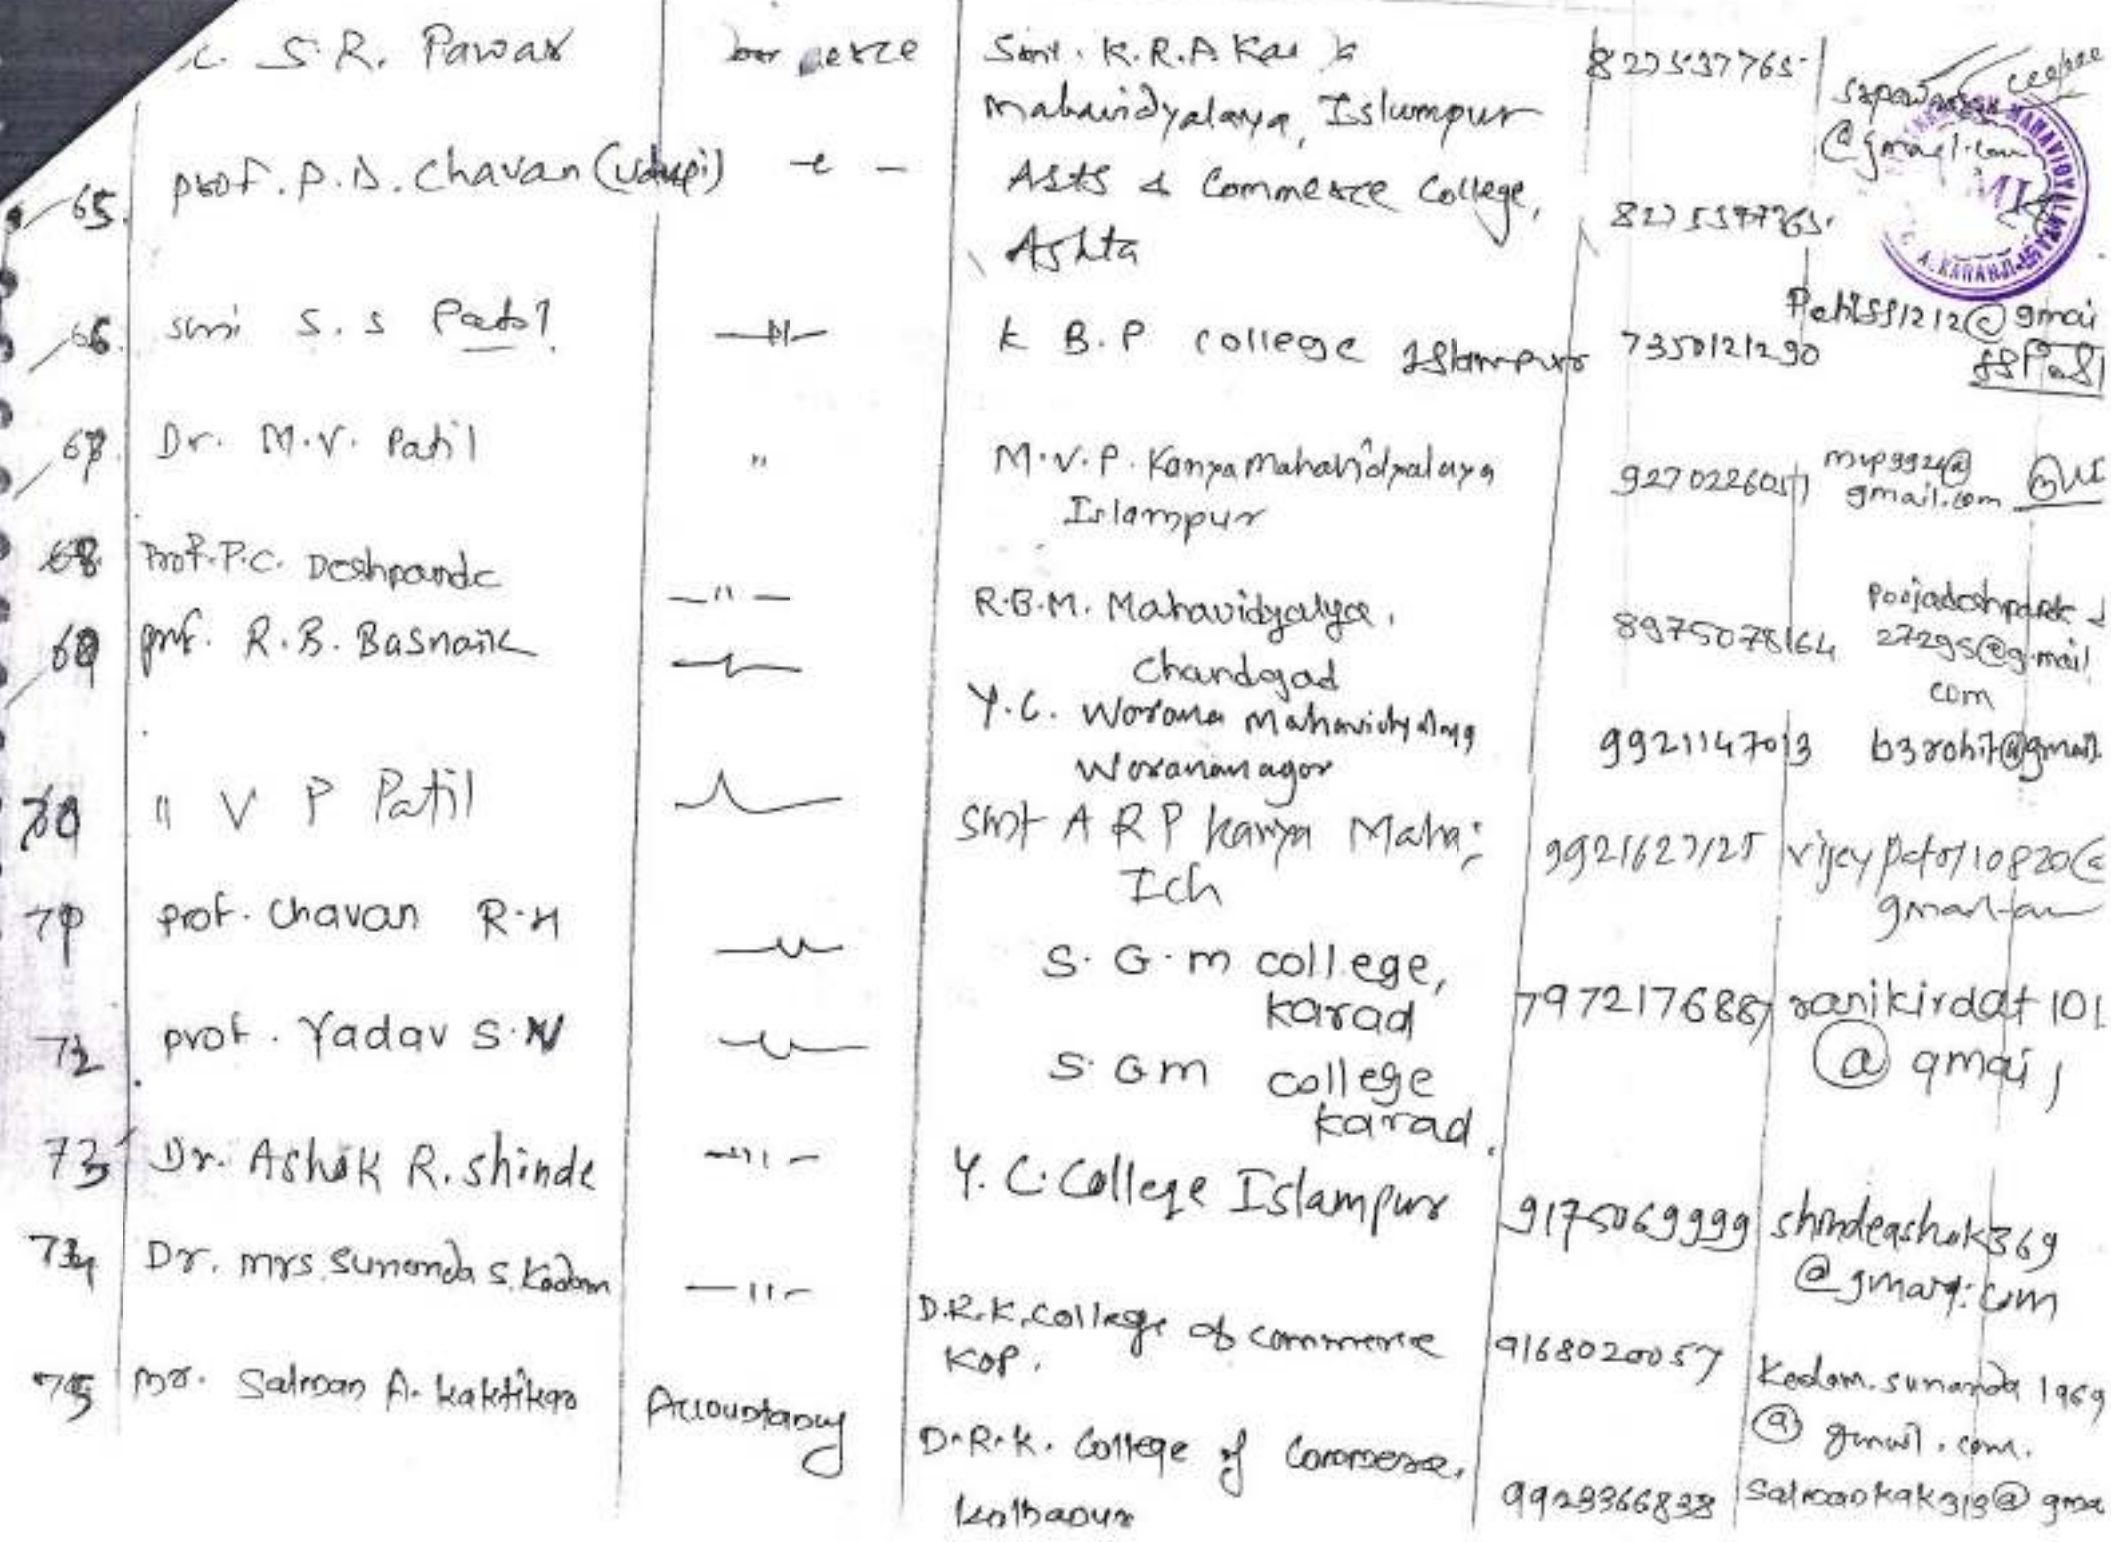 S.R. Pawar
Smt. K.R.A
Mahavidyalaya, Islumpur
@gmail.com
65. Prof. P.D. Chavan (Udupi)
Arts & Commerce College,
Ashta
66. smi S. S Patil
K B.P College Islampur 7350121290
Patilss1212@gmai
67. Dr. M.V. Patil "
M.V.P. Kanya Mahavidyalaya
Islampur
mvp9924@
gmail.com
68. Prof. P.C. Deshpande — " —
R.B.M. Mahavidyalya,
Chandgad
8975078164
27295@gmail
com
69 Prof. R.B. Basnaik
Y.C. Warana Mahavidyalaya
Warananagar
9921147013 b3rohit@gmail.
70 " V P Patil
Smt A R P Kanya Maha;
Ich
9921627125
71 Prof. Chavan R.H
S. G. M College,
Karad
7972176887 ranikirdat101
@ gmai
72 Prof. Yadav S.N
S. G M College
Karad.
73 Dr. Ashok R. Shinde — 11 —
Y. C. College Islampur
9175069999 shindeashok369
@gmail.com
74 Dr. Mrs. Sunanda S. Kadam — 11 —
D.R.K. College of Commerce
KOP.
9168020057
Kadam.sunanda1969
@ gmail.com.
75 Mr. Salman A. Kaktikar Accountancy
D.R.K. College of Commerce,
Kolhapur
9923366838 salmankak313@gma